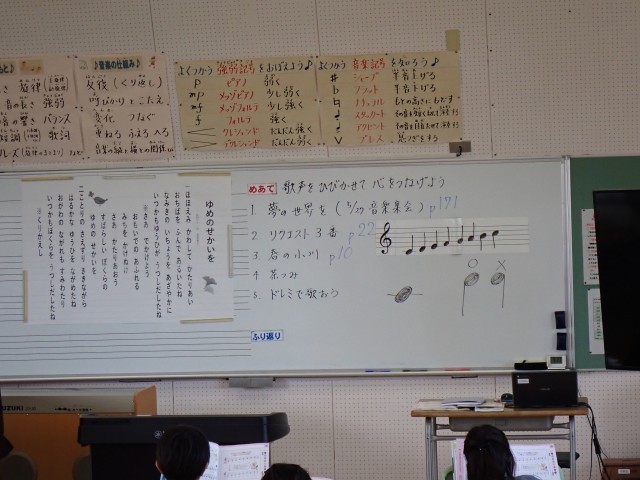 ♪音楽の仕組み♪
反復(くり返し)
呼びかけとこたえ
変化 つなぐ
重ねる
旋律
強弱
バランス
歌詞
よくつかう 強弱記号 をおぼえよう♪
p ピアノ 弱く
mp メッゾピアノ 少し弱く
mf メッゾフォルテ 少し強く
f フォルテ 強く
クレシェンド だんだん強く
デクレシェンド だんだん弱く
よくつかう 音楽記号 を知ろう♪
♯ シャープ 半音上げる
♭ フラット 半音下げる
♮ ナチュラル もとの高さにもどす
スタッカート
アクセント
V ブレス 息つぎをする
ゆめのせかいを
ほほえみ かわして かたりあい
おちばを ふんで あるいたね
なみきの いちょうを あざやかに
いつかもゆうひが うつしだしたね
※さあ でかけよう
おもいでの あふれる
みちを かけぬけ
さあ かたりあおう
すばらしい ぼくらの
ゆめの せかいを
二ことりの さえずり ききながら
はるかな ゆうひを ながめたね
おがわの ながれも すみわたり
いつかもぼくらを うつしだしたね
※くりかえし
めあて 歌声をひびかせて 心をつなげよう
1. 夢の世界を (5/27 音楽集会) p191
2 リクエスト3番 p22
3 春の小川 p10
4 茶つみ
5. ドレミで歌おう
○ ×
ふり返り
SUZUKI